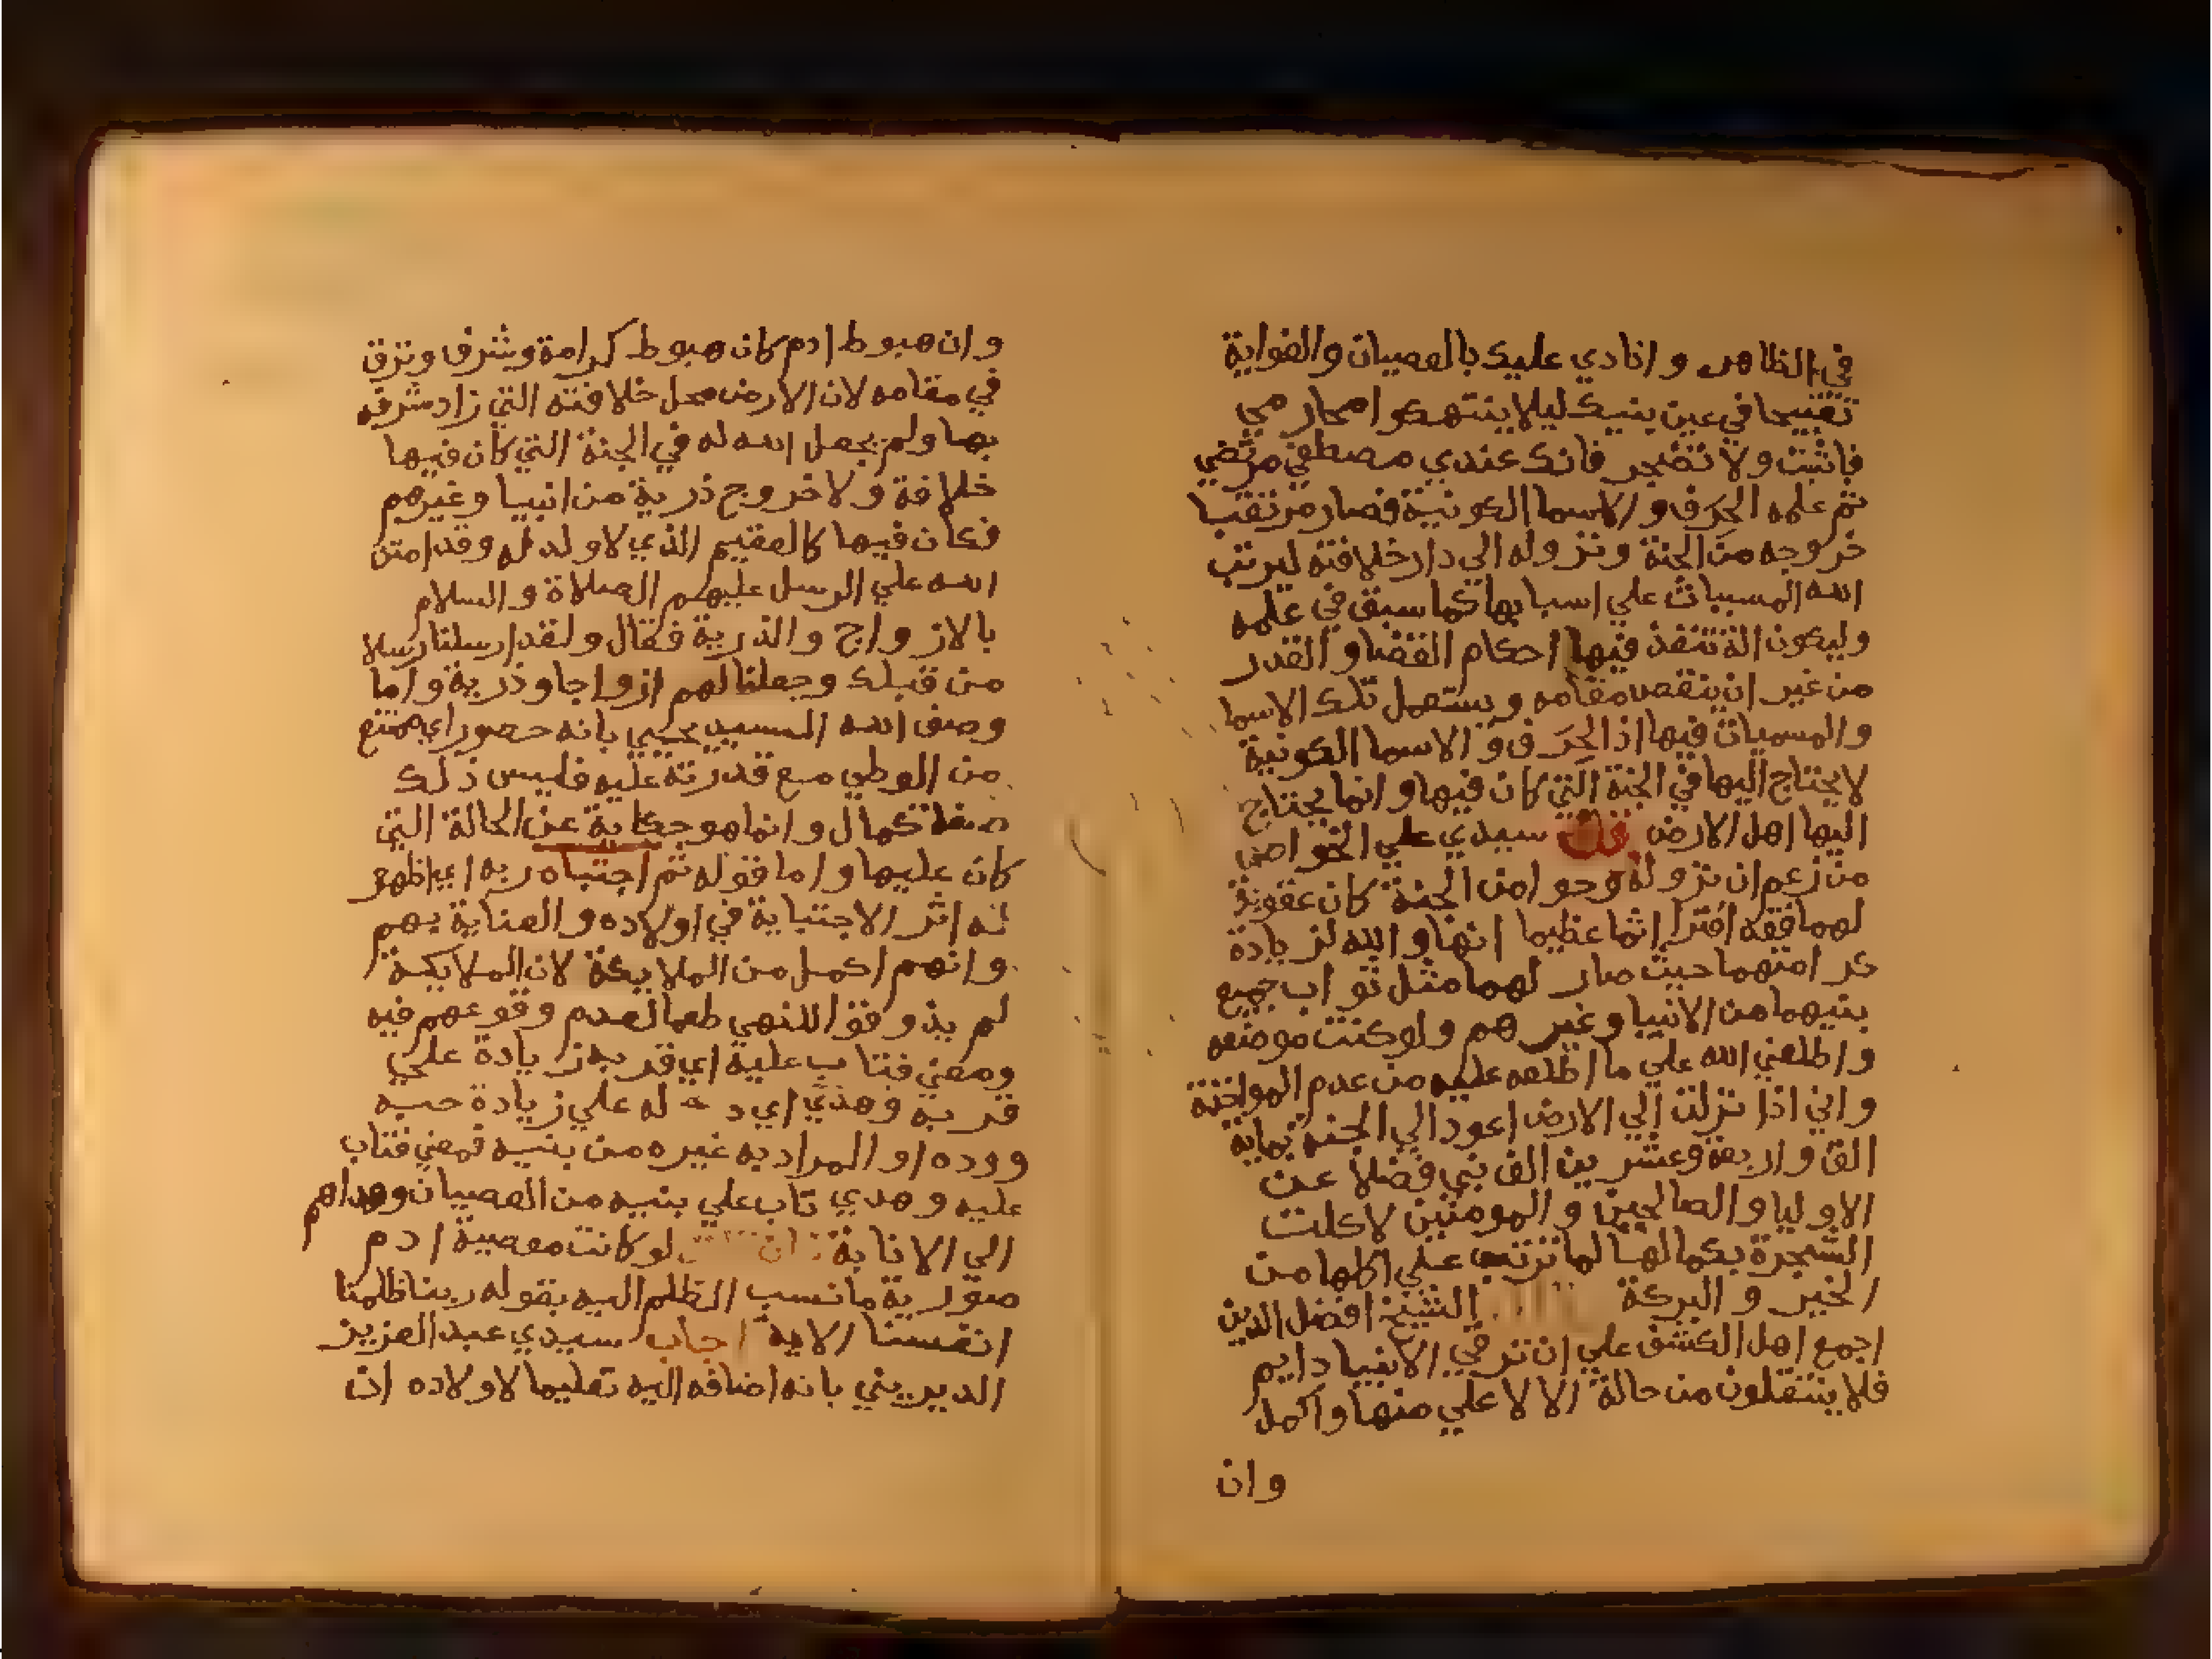 في الظاهر وانادي عليك بالعصيان والغواية
تقبيحا في عين بنيك ليلا ينتهكوا محارمي
فاثبت ولا تضجر فانك عندي مصطفي مرتضي
ثم علمه الحرف والاسما الكونية فصار مرتقبا
خروجه من الجنة ونزوله الي دار خلافته ليرتب
الله المسببات علي اسبابها كما سبق في علمه
وليكون الة تنفذ فيها احكام القضا والقدر
من غير ان ينقص مقامه ويستعمل تلك الاسما
والمسميات فيها اذ الحرف والاسما الكونية
لا يحتاج اليها في الجنة التي كان فيها وانما يحتاج
اليها اهل الارض سيدي علي الخواص
من زعم ان نزوله وحوا من الجنة كان عقوبة
لهما فقد افترا اثما عظيما انها والله لزيادة
كرامتهما حيث صار لهما مثل ثواب جميع
بنيهما من الانبيا وغيرهم ولو كنت موضعه
واطلعني الله علي ما اطلعه عليه من عدم المواخذة
واني اذا نزلت الي الارض اعود الي الجنة بماية
الف واربعة وعشرين الف نبي فضلا عن
الاوليا والصالحين والمومنين لاكلت
الشجرة بكمالها لما ترتب علي اكلها من
الخير والبركة الشيخ افضل الدين
اجمع اهل الكشف علي ان ترقي الانبيا دايم
فلا ينتقلون من حالة الا لاعلي منها واكمل
وان
وان هبوط ادم كان هبوط كرامة وشرف وترق
في مقامه لان الارض محل خلافته التي زاد شرفه
بها ولم يجعل الله له في الجنة التي كان فيها
خلافة ولا خروج ذرية من انبيا وغيرهم
فكان فيها كالعقيم الذي لا ولد له وقد امتن
الله علي الرسل عليهم الصلاة والسلام
بالازواج والذرية فقال ولقد ارسلنا رسلا
من قبلك وجعلنا لهم ازواجا وذرية واما
وصف الله السيد يحيي بانه حصور اي ممتنع
من الوطي مع قدرته عليه فليس ذلك
صفة كمال وانما هو حكاية عن الحالة التي
كان عليها واما قوله ثم اجتباه ربه اي اظهر
له اثر الاجتباية في اولاده والعناية بهم
وانهم اكمل من الملايكة لان الملايكة
لم يذوقوا للنهي طعما لعدم وقوعهم فيه
ومعني فتاب علية اي قربه زيادة علي
قربه وهدي اي د له علي زيادة حبه
ووده او المراد به غيره من بنيه فمعني فتاب
عليه وهدي تاب علي بنيه من العصيان وهداهم
الي الانابة لو كانت معصية ادم
صورية ما نسب الظلم اليه بقوله ربنا ظلمنا
انفسنا الاية اجاب سيدي عبد العزيز
الديريني بانه اضافه اليه تعليما لاولاده ان